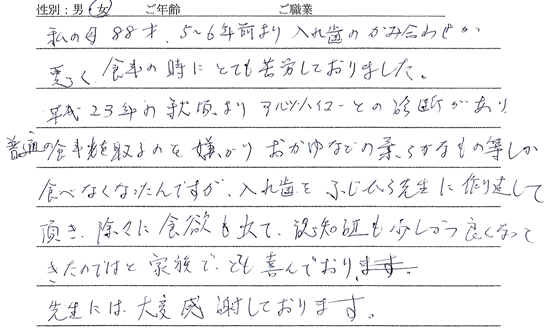 性別：男・女　ご年齢　ご職業
私の母88才、5～6年前より入れ歯のかみ合わせが
悪るく、食事の時にとても苦労しておりました。
平成23年の秋頃よりアルツハイマーとの診断があり
普通の食事を取るのを嫌がりおかゆなどの柔らかなもの等しか
食べなくなったんですが、入れ歯をふじむら先生に作り直して
頂き、除々に食欲も出て、認知症も少しづつ良くなって
きたのではと家族で、とても喜んでおります。
先生には大変感謝しております。